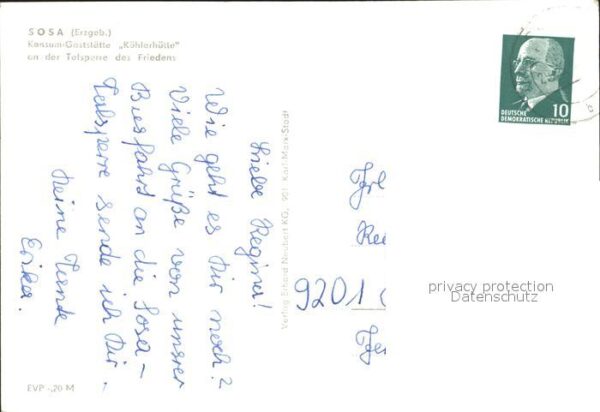 SOSA (Erzgeb.)
Konsum-Gaststätte „Köhlerhütte"
an der Talsperre des Friedens
Liebe Regina!
Wie geht es Dir noch?
Viele Grüße von unsrer
Busfahrt an die Sosa-
Talsperre sende ich Dir.
Deine Tante
Erika.
Verlag Erhard Neubert KG, 901 Karl-Marx-Stadt
10
DEUTSCHE
DEMOKRATISCHE REPUBLIK
9201
privacy protection
Datenschutz
EVP -,20 M